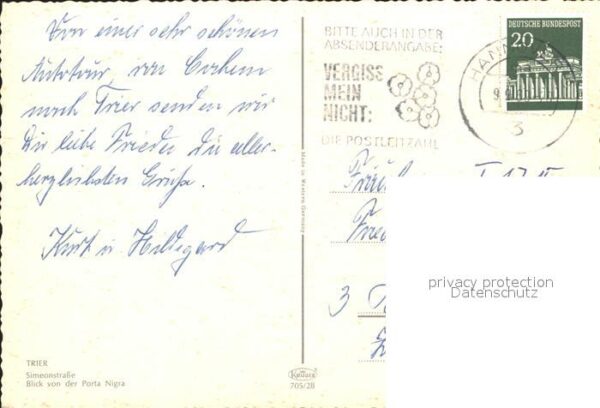 Von einer sehr schönen
Autotour, von Cochem
nach Trier senden wir
Dir liebe Frieda die aller-
herzlichsten Grüße.
Kurt u Hildegard
TRIER
Simeonstraße
Blick von der Porta Nigra
Made in Western Germany
Krüger
705/28
BITTE AUCH IN DER
ABSENDERANGABE:
VERGISS
MEIN
NICHT:
DIE POSTLEITZAHL
DEUTSCHE BUNDESPOST
20
HANN
3
3
privacy protection
Datenschutz